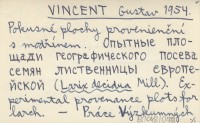 VINCENT Gustav 1954.
Pokusné plochy provenienční
s modřínem. Опытные пло-
щади географического посева
семян лиственницы европе-
йской (Larix decidua Mill.). Ex-
perimental provenance plots for
larch. — Práce Výzkumných